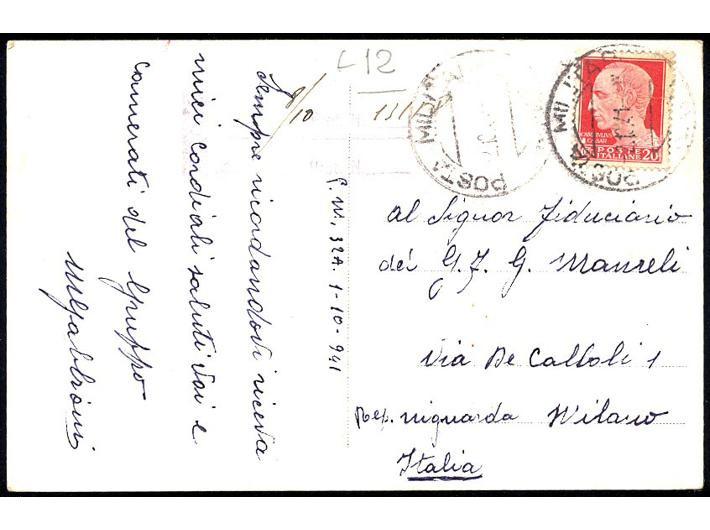 Sempre ricordandovi riceva
miei cordiali saluti voi e
camerati del Gruppo
P. M. 32A. 1-10-941
8/10
C 12
POSTA MILITARE
POSTA MILITARE
POSTE
ITALIANE 20
Al Signor Fiduciario
del G. F. G.
Via De Calboli 1
Rep. niguarda Milano
Italia